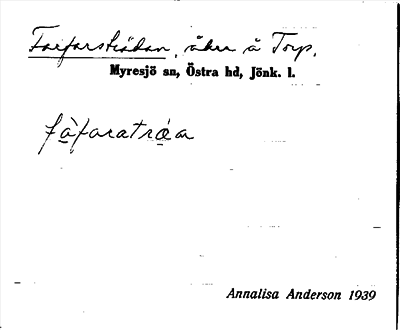 Farfarsträdan, åker å Torp.
Myresjö sn, Östra hd, Jönk. l.
fàfaratráa
Annalisa Anderson 1939